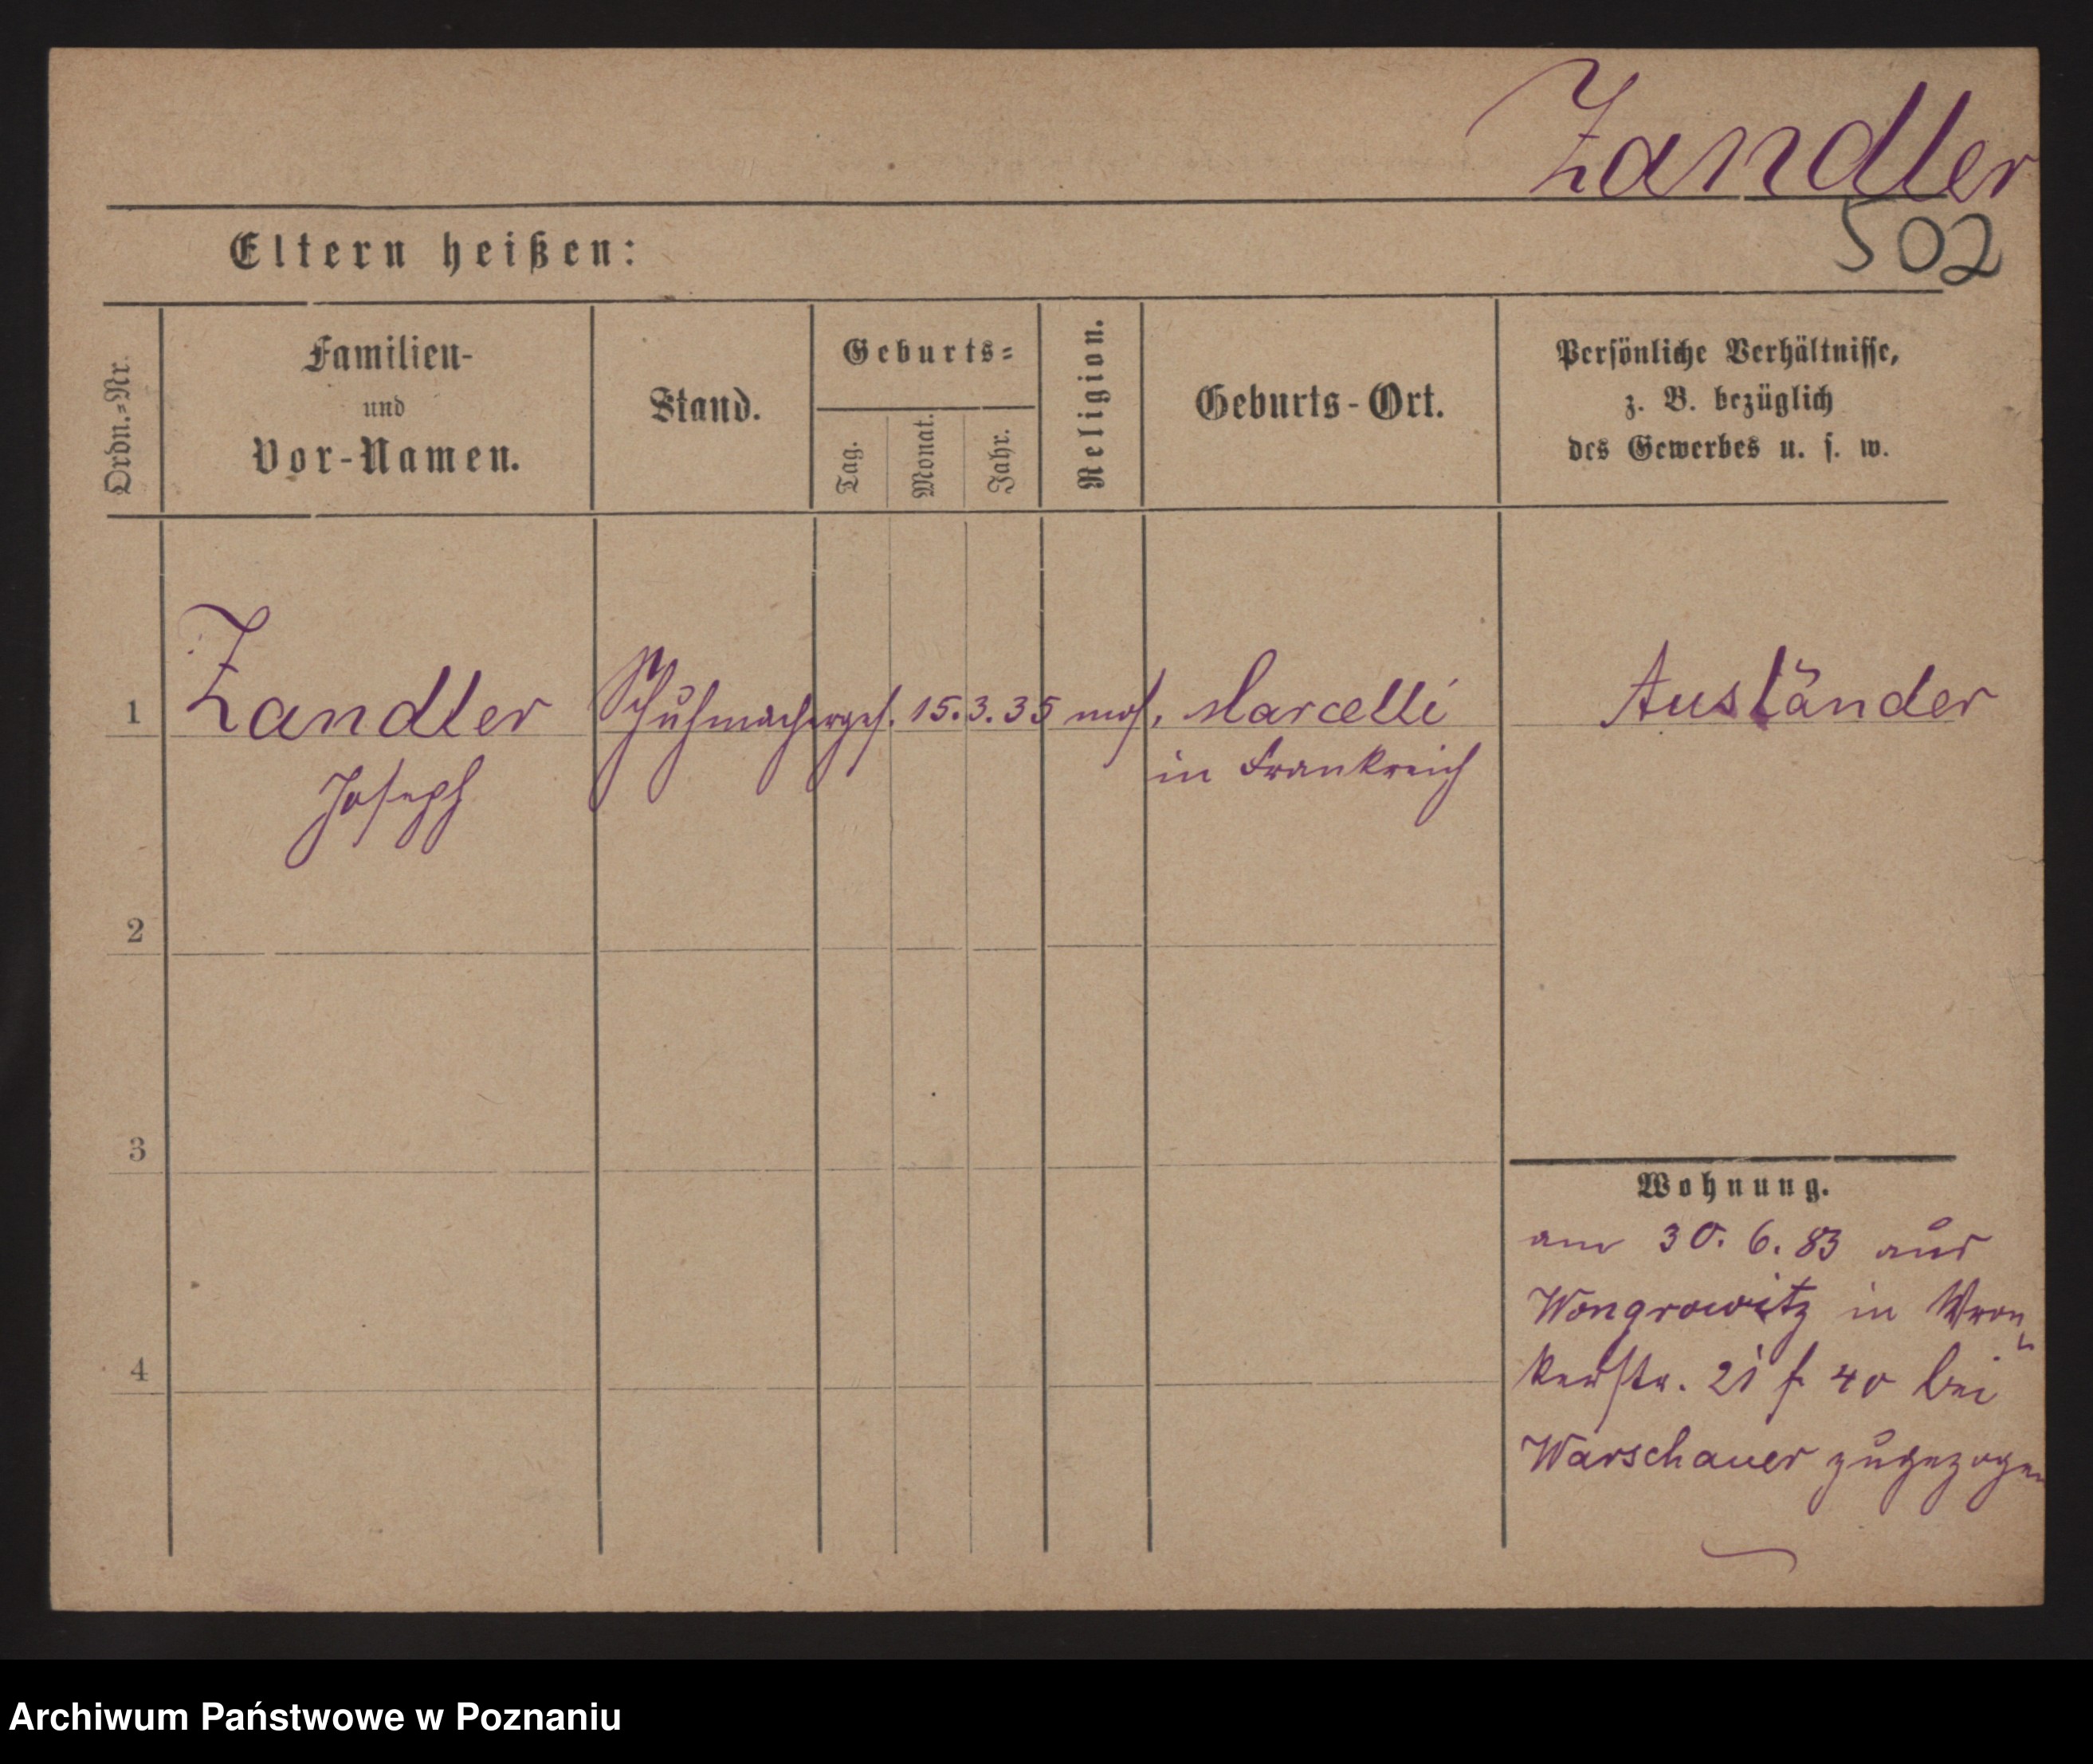 Zandler
502
Eltern heißen:
Ordn.-Nr.
Familien-
und
Vor-Namen.
Stand.
Geburts-
Tag.
Monat.
Jahr.
Religion.
Geburts-Ort.
Persönliche Verhältnisse,
z. B. bezüglich
des Gewerbes u. s. w.
1 Zandler Schuhmacherges. 15.3.35 mos. Marcelli Ausländer
Joseph in Frankreich
2
3
4
Wohnung.
am 30. 6. 83 aus
Wongrowitz in Wron-
kerstr. 21 f. 40 bei
Warschauer zugezogen
Archiwum Państwowe w Poznaniu